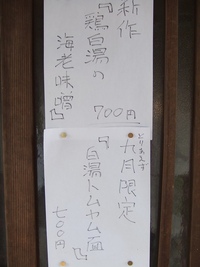 新作
『鶏白湯の
海老味噌』
700円
とりあえず
九月限定
『白湯トムヤム麺』
七〇〇円